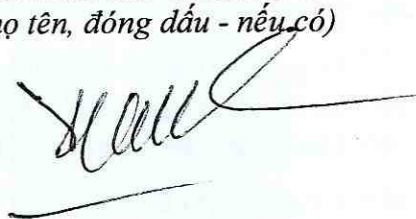 họ tên, đóng dấu - nếu có)